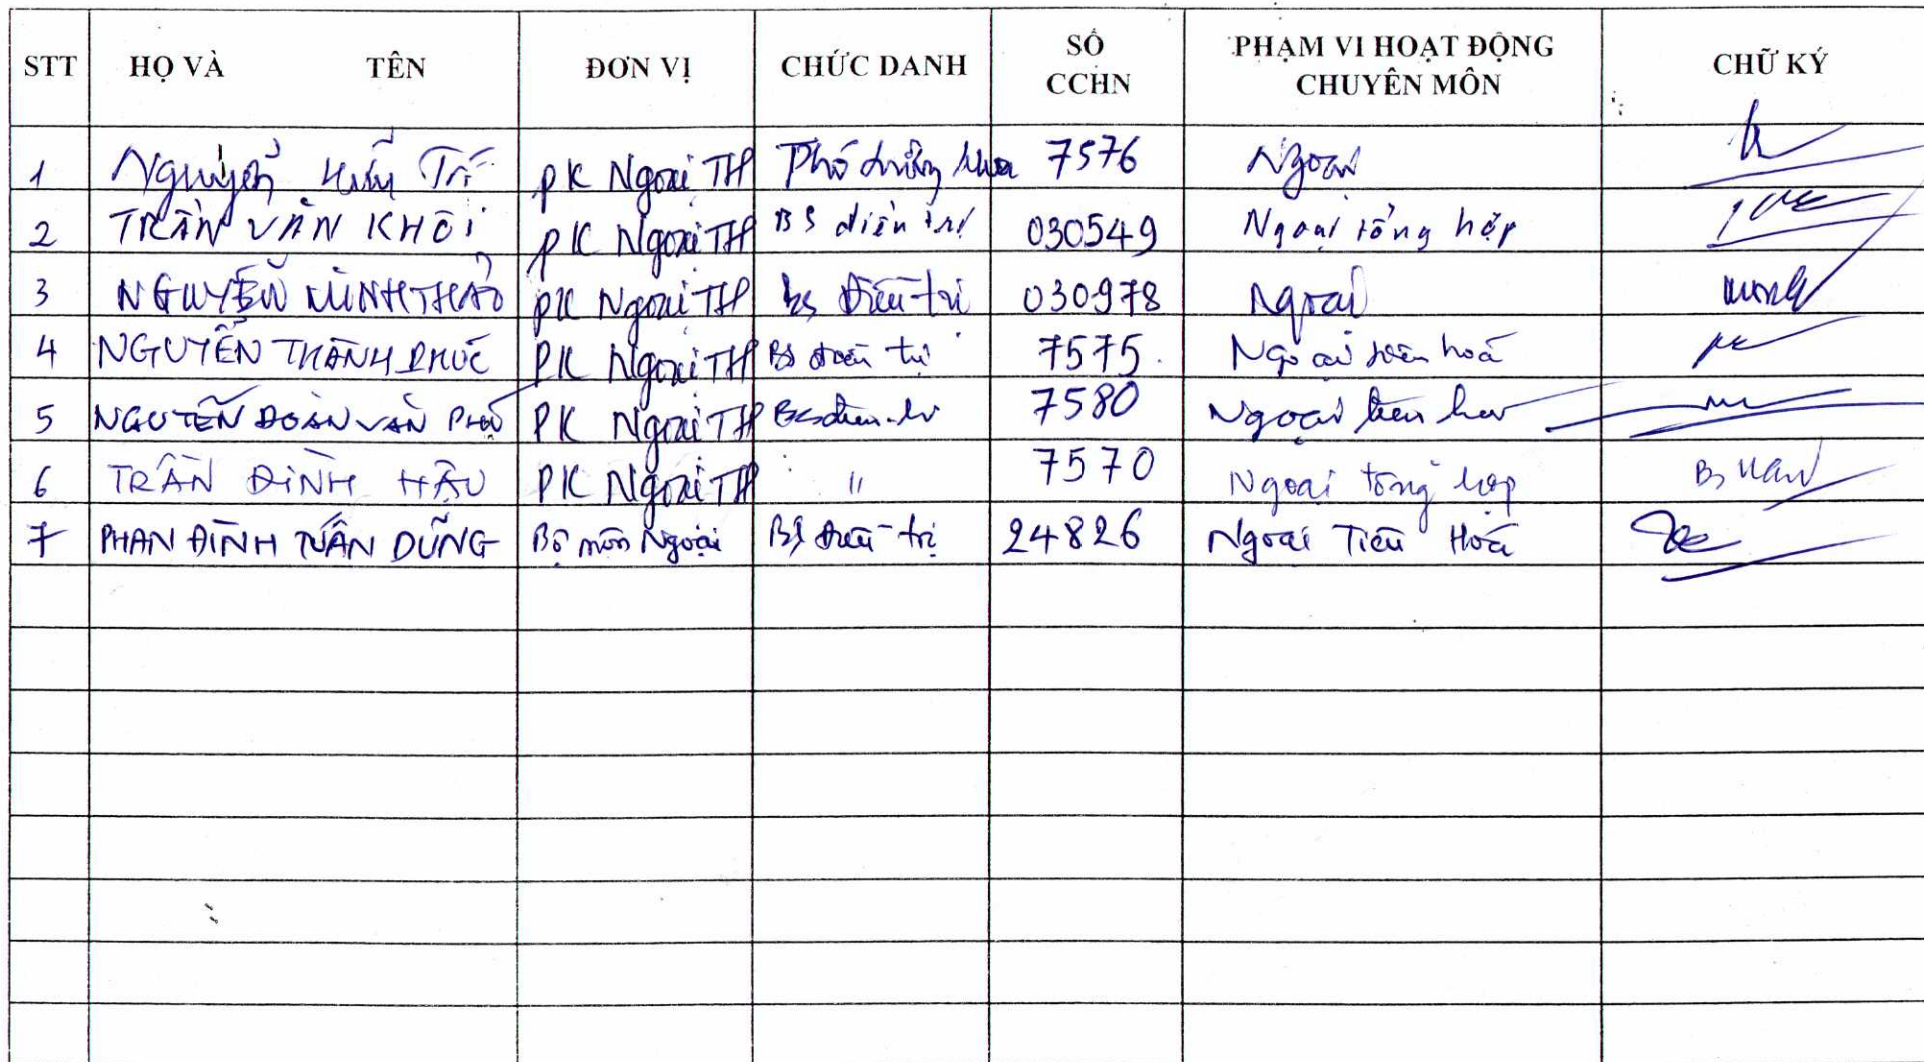 STT HỌ VÀ TÊN ĐƠN VỊ CHỨC DANH SỐ CCHN PHẠM VI HOẠT ĐỘNG CHUYÊN MÔN CHỮ KÝ
1 Nguyễn Hữu Trí PK Ngoại TH Phó trưởng khoa 7576 Ngoại
2 TRẦN VĂN KHÔI PK Ngoại TH BS điều trị 030549 Ngoại tổng hợp
3 NGUYỄN MINH THẢO PK Ngoại TH bs điều trị 030978 Ngoại
4 NGUYỄN THÀNH PHÚC PK Ngoại TH Bs điều trị 7575 Ngoại tiêu hoá
5 NGUYỄN ĐOÀN VĂN PHÚ PK Ngoại TH Bs điều trị 7580 Ngoại tiêu hoá
6 TRẦN ĐÌNH HẬU PK Ngoại TH " 7570 Ngoại tổng hợp Bs Hậu
7 PHAN ĐÌNH TUẤN DŨNG Bộ môn Ngoại BS điều trị 24826 Ngoại Tiêu Hoá